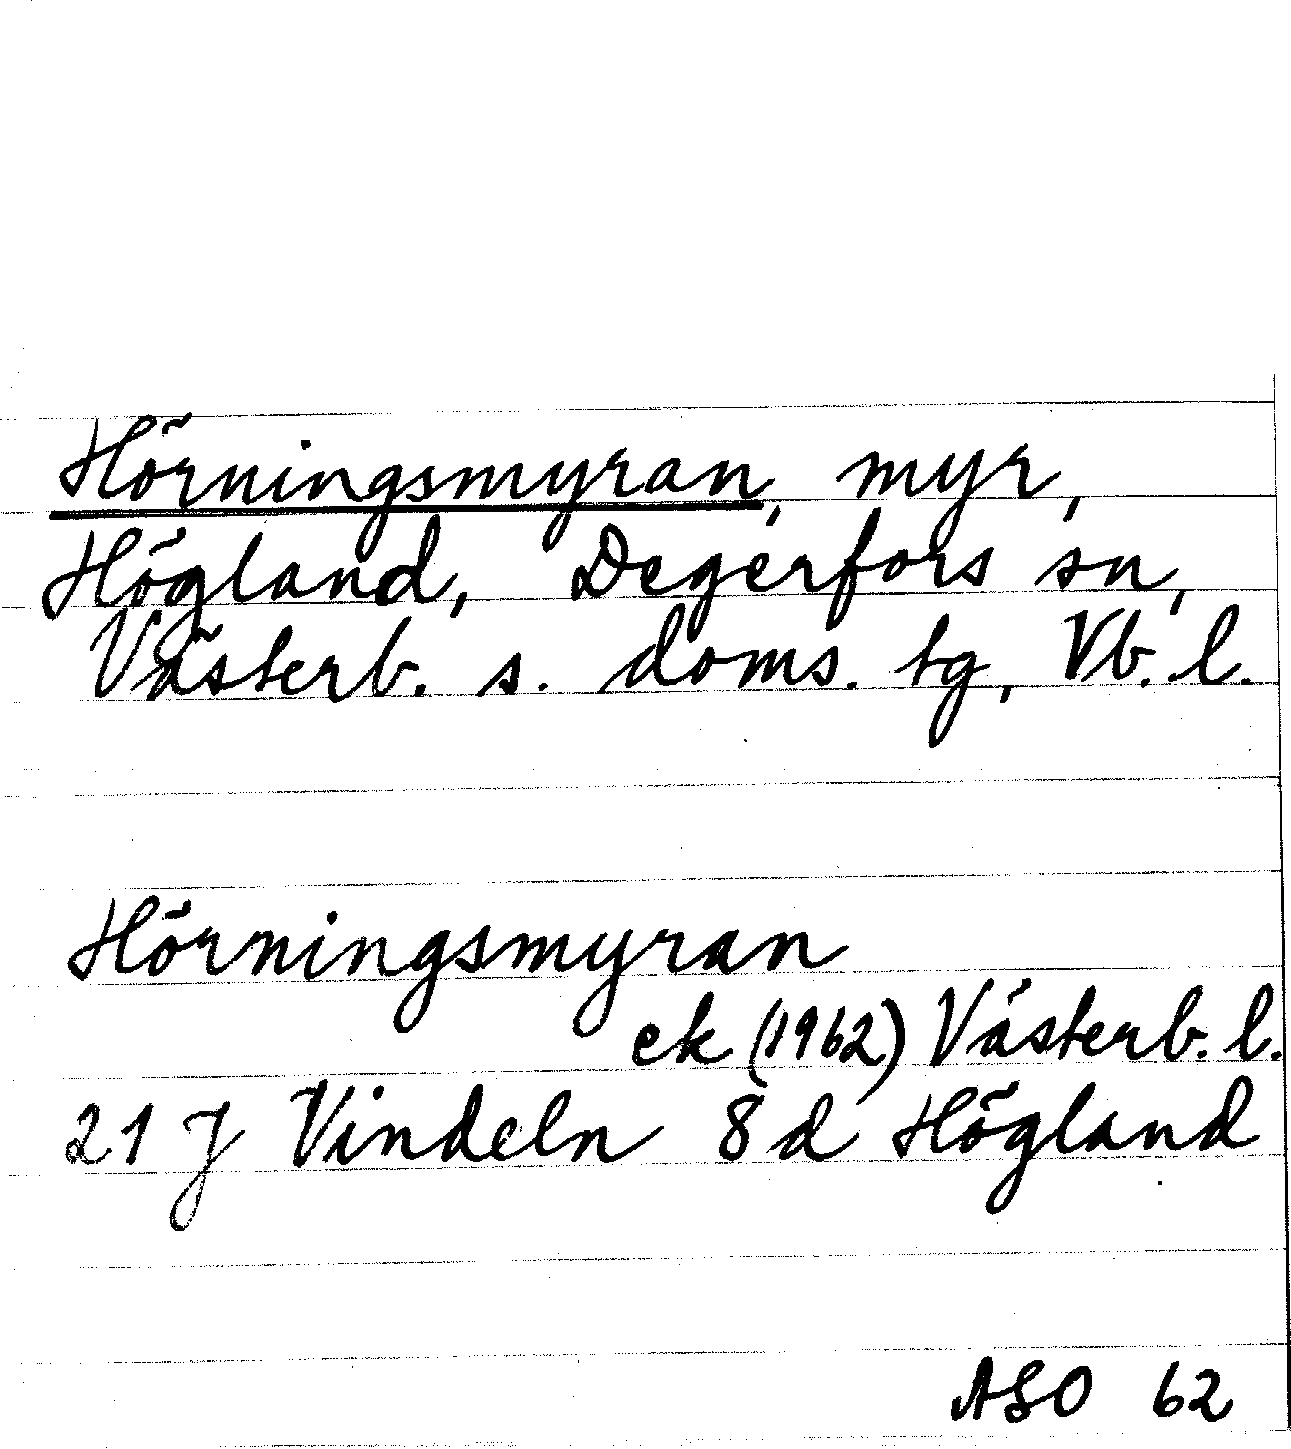 Hörningsmyran, myr,
Högland, Degerfors sn,
Västerb. s. doms. tg, Vb. l.
Hörningsmyran
ek (1962) Västerb. l.
21 J Vindeln 8 d Högland
ASO 62